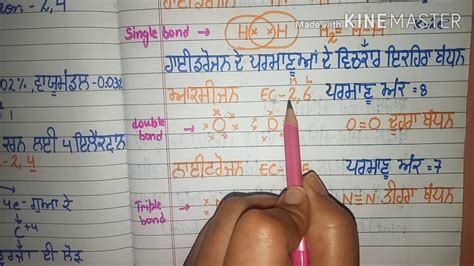 on - 2,4
Made with KINEMASTER
Single bond → H H H₂ = H-H
ਹਾਈਡਰੋਜਨ ਦੇ ਪਰਮਾਣੂਆਂ ਦੇ ਵਿਚਕਾਰ ਇਕਹਿਰਾ ਬੰਧਨ
02% ਵਾਯੂਮੰਡਲ - 0.03%
ਆਕਸੀਜਨ EC - 2,6 ਪਰਮਾਣੂ ਅੰਕ = 8
ਲਈ 4 ਇਲੈਕਟ੍ਰਾਨ
double bond → O=O ਦੂਹਰਾ ਬੰਧਨ
- 2,4
ਨਾਈਟਰੋਜਨ EC - ਪਰਮਾਣੂ ਅੰਕ = 7
4e⁻ ਗੁਆ ਕੇ
Triple bond → N≡N ਤੀਹਰਾ ਬੰਧਨ
C⁺⁴
ਦੀ ਲੋੜ